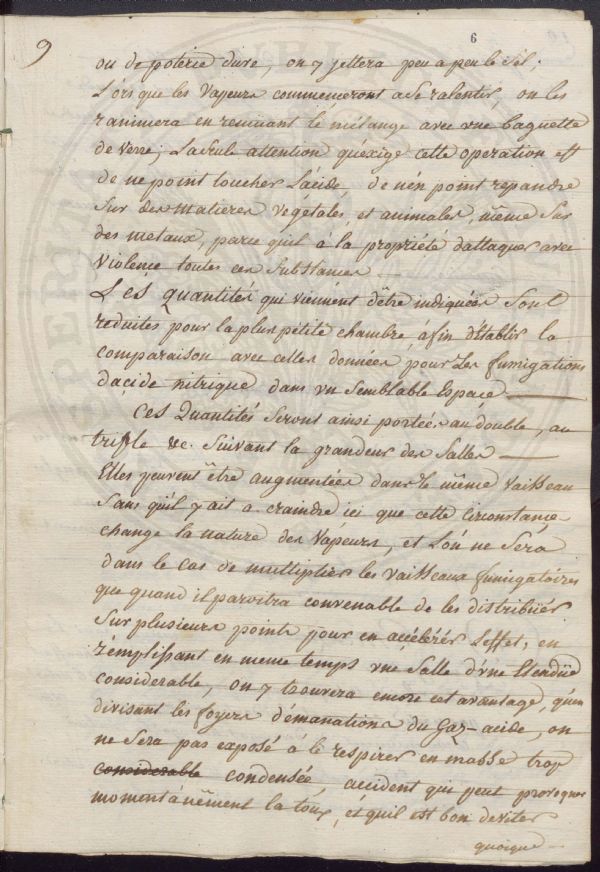 9
6
ou de poterie dure, on y jettera peu a peu le Sel;
Lorsque les Vapeurs commenceront a Se ralentir, on les
ranimera en remuant le mélange avec une baguette
de verre; La Seule attention qu'exige cette operation est
de ne point toucher L'acide, de n'en point repandre
Sur des matieres végétales et animales, même Sur
des metaux, parce qu'il à la propriété d'attaquer avec
Violence toutes ces Substances
Les quantités qui viennent d'être indiquées Sont
reduites pour la plus petite chambre afin d'Etablir la
comparaison avec celles données pour Les fumigations
d'acide nitrique dans un Semblable Espace
Ces Quantités Seront ainsi portées au double, au
triple &c. Suivant la grandeur des Salles
Elles peuvent être augmentées dans le même Vaisseau
Sans qu'il y ait a craindre ici que cette Circonstance
change la nature des Vapeurs, et L'on ne Sera
dans le Cas de multiplier les Vaisseaux fumigatoires
que quand il paroitra convenable de les distribuer
Sur plusieurs points pour en accélérer L'effet, en
remplissant en meme temps une Salle d'une Etendüe
considerable, on y trouvera encore cet avantage, qu'en
divisant les foyers d'émanations du Gaz-acide, on
ne Sera pas exposé à le respirer en masse trop
considerable condensée, accident qui peut provoquer
momentanément la toux, et qu'il est bon d'eviter
quoique